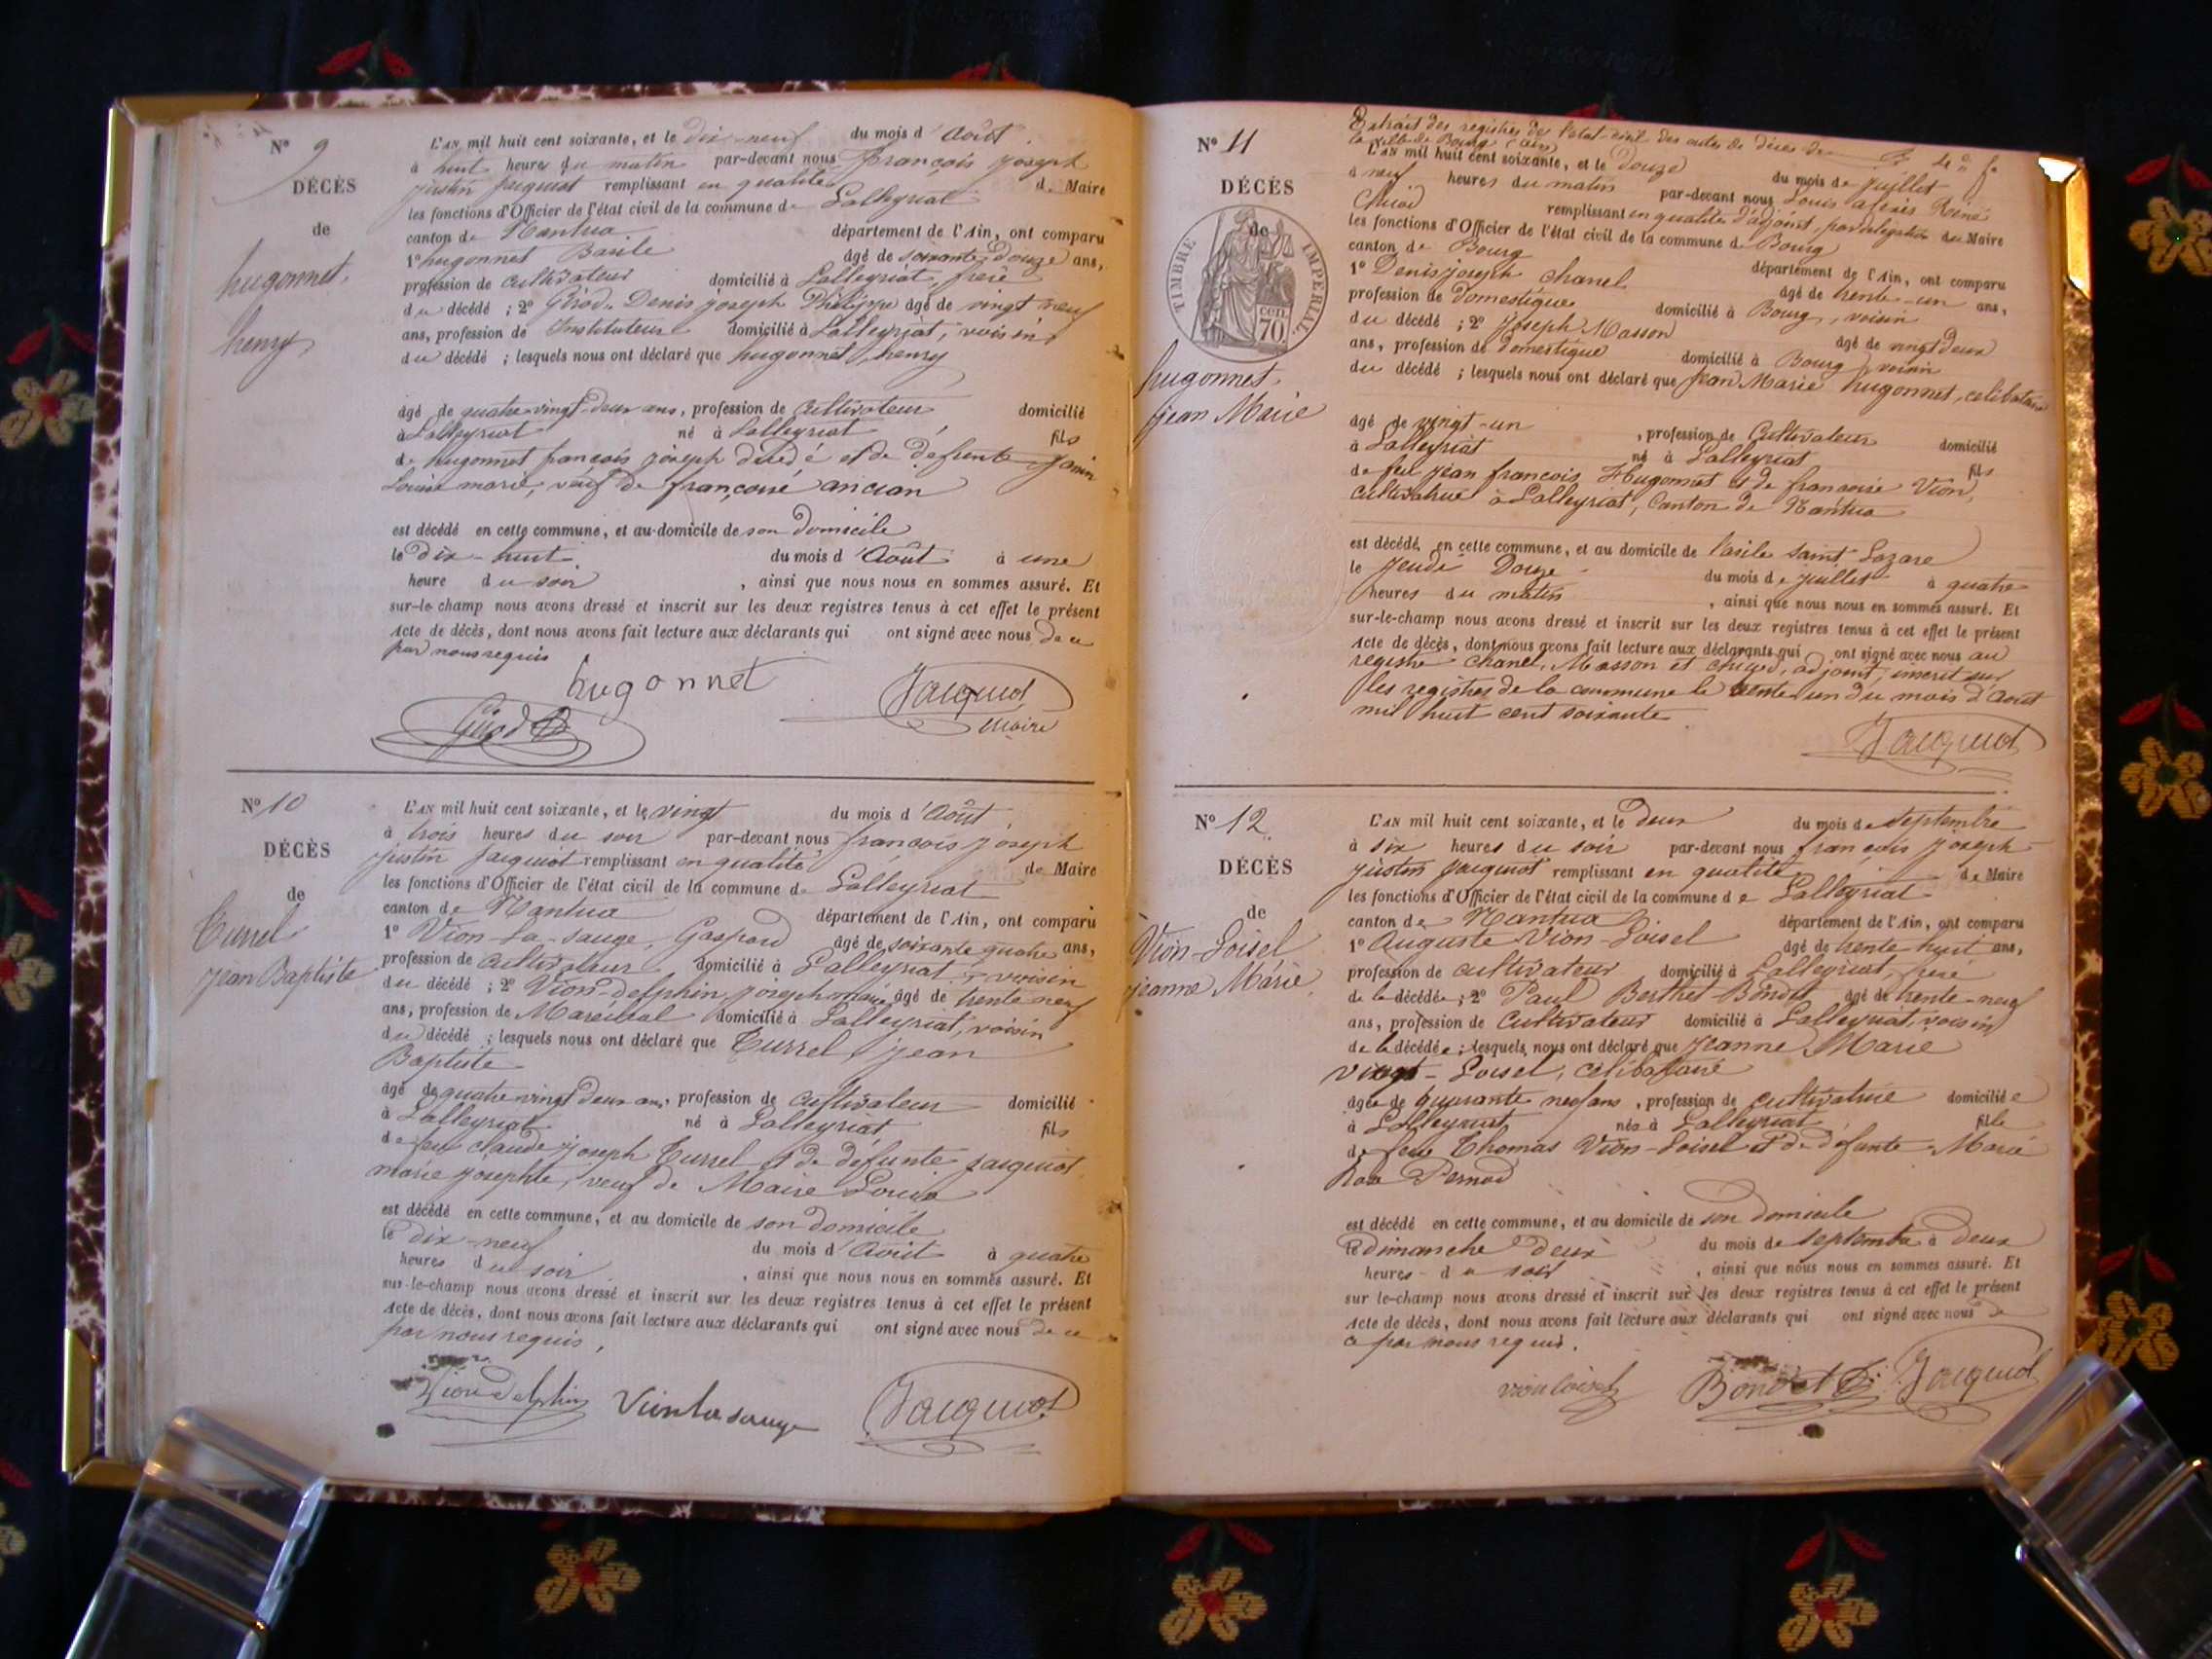 N° 9
DÉCÈS
de
hugonnet
henry
L'AN mil huit cent soixante, et le dix-neuf du mois d'Août
à huit heures du matin par-devant nous françois joseph
justin jacquiot remplissant en qualité de Maire
les fonctions d'Officier de l'état civil de la commune de Lalleyriat
canton de Nantua département de l'Ain, ont comparu
1° hugonnet Basile âgé de soixante-douze ans,
profession de cultivateur domicilié à Lalleyriat, frère
du décédé ; 2° Girod Denis joseph Philippe âgé de vingt neuf
ans, profession de Instituteur domicilié à Lalleyriat, voisin
du décédé ; lesquels nous ont déclaré que hugonnet henry
âgé de quatre vingt-deux ans, profession de Cultivateur domicilié
à Lalleyriat né à Lalleyriat, fils
de hugonnet françois joseph décédé et de défunte
Louise marie, veuf de françoise ancian
est décédé en cette commune, et au domicile de son Domicile
le Dix-huit du mois d'Août à une
heure du soir, ainsi que nous nous en sommes assuré. Et
sur-le-champ nous avons dressé et inscrit sur les deux registres tenus à cet effet le présent
Acte de décès, dont nous avons fait lecture aux déclarants qui ont signé avec nous de ce
par nous requis
hugonnet
Jacquiot
Girod
Maire
N° 10
DÉCÈS
de
Turrel
jean Baptiste
L'AN mil huit cent soixante, et le vingt du mois d'Août
à trois heures du soir par-devant nous françois joseph
justin jacquiot remplissant en qualité de Maire
les fonctions d'Officier de l'état civil de la commune de Lalleyriat
canton de Nantua département de l'Ain, ont comparu
1° Vion-la-sauge, Gaspard âgé de soixante quatre ans,
profession de cultivateur domicilié à Lalleyriat, voisin
du décédé ; 2° Vion-delphin, joseph marie âgé de trente neuf
ans, profession de Marechal domicilié à Lalleyriat, voisin
du décédé ; lesquels nous ont déclaré que Turrel jean
Baptiste
âgé de quatre vingt deux ans, profession de cultivateur domicilié
à Lalleyriat né à Lalleyriat fils
de feu claude joseph Turrel et de défunte jacquiot
marie josephte, veuf de Maire Louise
est décédé en cette commune, et au domicile de son domicile
le dix-neuf du mois d'Août à quatre
heures du soir, ainsi que nous nous en sommes assuré. Et
sur-le-champ nous avons dressé et inscrit sur les deux registres tenus à cet effet le présent
Acte de décès, dont nous avons fait lecture aux déclarants qui ont signé avec nous de ce
par nous requis,
Vion delphin Vionlasauge Jacquiot
N° 11
DÉCÈS
de
TIMBRE IMPERIAL
70 cen.
hugonnet
jean Marie
Extrait des registres de l'etat-civil des actes de décès de
la ville de Bourg (ain)
L'AN mil huit cent soixante, et le Douze du mois de juillet
à neuf heures du matin par-devant nous Louis René
Chicod remplissant en qualité d'adjoint, par délégation du Maire
les fonctions d'Officier de l'état civil de la commune de Bourg
canton de Bourg département de l'Ain, ont comparu
1° Denis joseph Chanel âgé de trente-un ans,
profession de domestique domicilié à Bourg, voisin
du décédé ; 2° Joseph Masson âgé de vingt deux
ans, profession de domestique domicilié à Bourg, voisin
du décédé ; lesquels nous ont déclaré que jean Marie hugonnet, celibataire
âgé de vingt-un, profession de Cultivateur domicilié
à Lalleyriat né à Lalleyriat fils
de feu jean francois Hugonnet et de francoise Vion,
cultivatrice à Lalleyriat, Canton de Nantua
est décédé en cette commune, et au domicile de l'asile Saint Lazare
le Jeudi Douze du mois de juillet à quatre
heures du matin, ainsi que nous nous en sommes assuré. Et
sur-le-champ nous avons dressé et inscrit sur les deux registres tenus à cet effet le présent
Acte de décès, dont nous avons fait lecture aux déclarants qui ont signé avec nous au
registre Chanel, Masson et Chicod, adjoint, inscrit sur
les registres de la commune le trente un du mois d'Aout
mil huit cent soixante
Jacquiot
N° 12
DÉCÈS
de
Vion-Loisel
jeanne Marie
L'AN mil huit cent soixante, et le Deux du mois de Septembre
à six heures du soir par-devant nous françois joseph
justin jacquiot remplissant en qualité de Maire
les fonctions d'Officier de l'état civil de la commune de Lalleyriat
canton de Nantua département de l'Ain, ont comparu
1° Auguste Vion-Loisel âgé de trente-huit ans,
profession de cultivateur domicilié à Lalleyriat, frère
de la décédée ; 2° Paul Berthet-Bondet âgé de trente-neuf
ans, profession de Cultivateur domicilié à Lalleyriat, voisin
de la décédée ; lesquels nous ont déclaré que Jeanne Marie
Loisel, célibataire
âgée de quarante neuf ans, profession de cultivatrice domiciliée
à Lalleyriat née à Lalleyriat fille
de feu Thomas Vion-Loisel et de défunte Marie
Pernod
est décédé en cette commune, et au domicile de son domicile
le dimanche deux du mois de septembre à deux
heures du soir, ainsi que nous nous en sommes assuré. Et
sur le-champ nous avons dressé et inscrit sur les deux registres tenus à cet effet le présent
Acte de décès, dont nous avons fait lecture aux déclarants qui ont signé avec nous de
ce par nous requis.
vion loisel Bondet Jacquiot